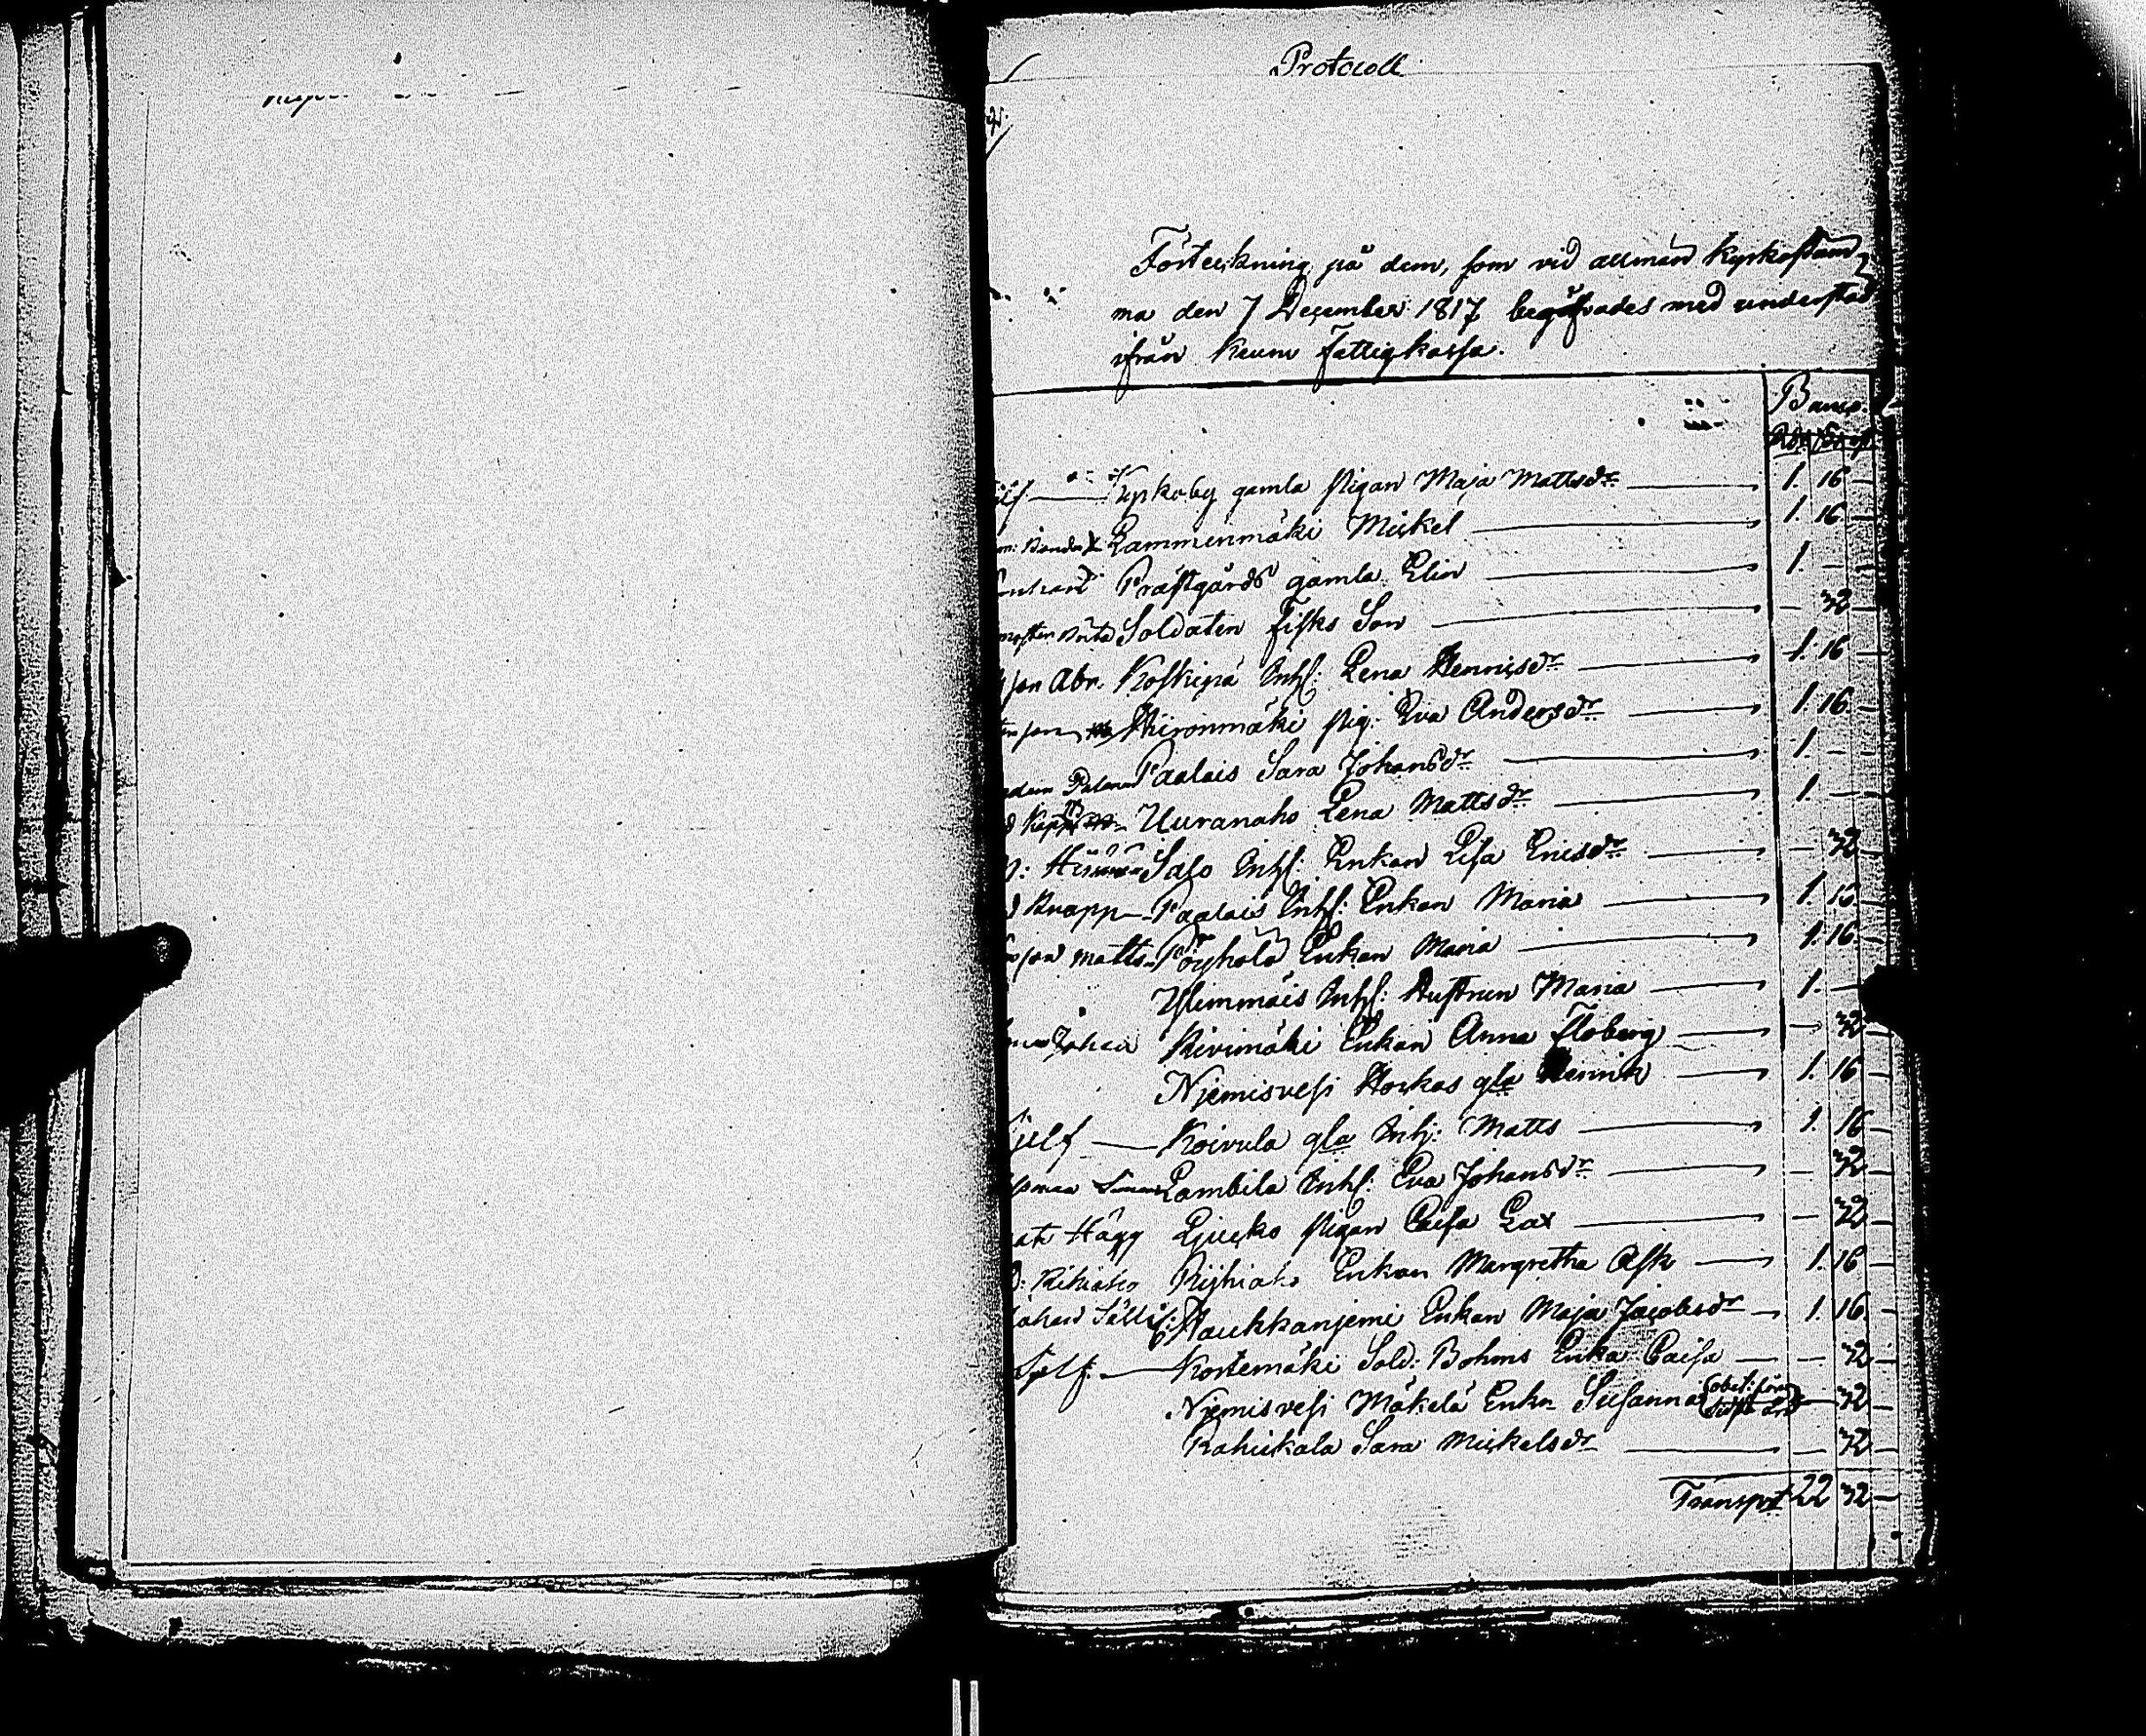 Protocoll
Förteckning på dem, som vid allmän Kyrkostäm
ma den 7 December 1817 begåfvades med understöd
ifrån Keuru Fattigkassa.
Banco.
Kyrkoby gamla Pigan Maja Mattsdr 1. 16 –
Lammenmäki Mickel 1. 16 –
Prästgårds gamla Elin 1 –
Soldaten Fisks Son – 32
son Abr. Koskipä Inhs: Lena Henricsdr 1. 16 –
Pig: Eva Andersdr 1. 16 –
Paalais Sara Johansdr 1. –
Uuranaho Lena Mattsdr 1. –
Salo Inhs: Enkan Lisa Ericsdr – 32
Knapp Paalais Inhs: Enkan Maria 1. 16
Matts Pöyhölä Enkan Maria 1. 16
Ylimmäis Inhs: Hustrun Maria 1. –
Johan Kivimäki Enkan Anna Floberg – 32
Njemisvesi Horkas gla Henrik 1. 16 –
Sjelf Koivula gla Inh: Matts 1. 16 –
Lambila Inhs: Eva Johansdr – 32
Hägg Ljucko Pigan Caisa Lax – 32 –
Rihiaho Rijhiaho Enkan Margretha Ask 1. 16 –
Haukkanjemi Enkan Maja Jacobsdr 1. 16 –
Sjelf. Kortemäki Sold: Bohms Enka Caisa – 32 –
Njemisvesi Mäkelä Enkn Susanna – 32 –
Kahukala Sara Mickelsdr – 32 –
Transpt 22 32 –